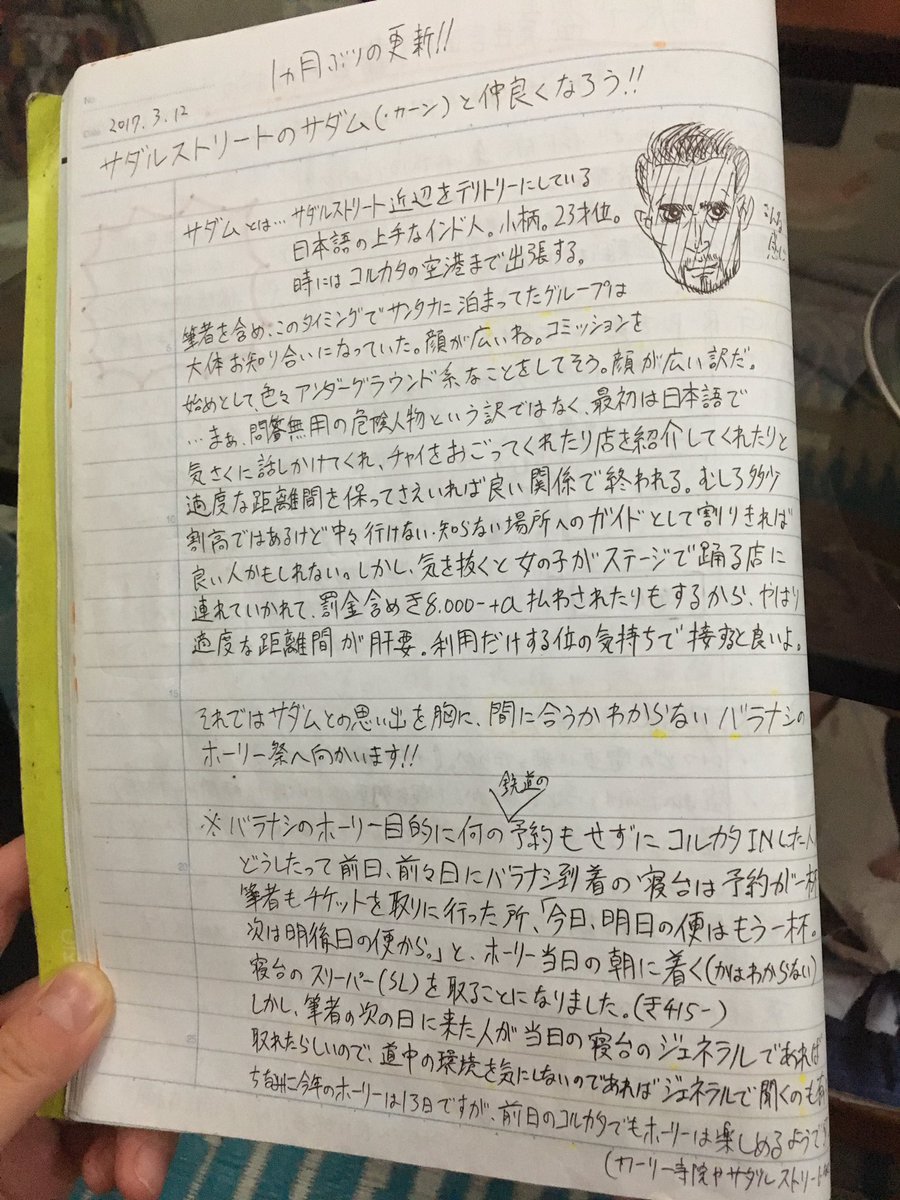 1ヵ月ぶりの更新!!
2017.3.12
サダルストリートのサダム(・カーン)と仲良くなろう!!
サダムとは… サダルストリート近辺をテリトリーにしている
日本語の上手なインド人。小柄。23才位。
時にはコルカタの空港まで出張する。
こんな
感じ
筆者を含め、このタイミングでサンタナに泊まってたグループは
大体お知り合いになっていた。顔が広いね。コミッションを
始めとして、色々アンダーグラウンド系なことをしてそう。顔が広い訳だ。
…まぁ、問答無用の危険人物という訳ではなく、最初は日本語で
気さくに話しかけてくれ、チャイをおごってくれたり店を紹介してくれたりと
適度な距離間を保ってさえいれば良い関係で終われる。むしろ多少
割高ではあるけど中々行けない・知らない場所へのガイドとして割りきれば
良い人かもしれない。しかし、気を抜くと女の子がステージで踊る店に
連れていかれて、罰金含め₹8.000-+α払わされたりもするから、やはり
適度な距離間が肝要。利用だけする位の気持ちで接すると良いよ。
それではサダムとの思い出を胸に、間に合うかわからないバラナシの
ホーリー祭へ向かいます!!
鉄道の
※バラナシのホーリー目的に何の予約もせずにコルカタINした人
どうしたって前日、前々日にバラナシ到着の寝台は予約が一杯
筆者もチケットを取りに行った所、「今日、明日の便はもう一杯。
次は明後日の便から。」と、ホーリー当日の朝に着く(かはわからない)
寝台のスリーパー(SL)を取ることになりました。(₹415-)
しかし、筆者の次の日に来た人が当日の寝台のジェネラルであれば
取れたらしいので、道中の環境を気にしないのであればジェネラルで聞くのも
ちなみに今年のホーリーは13日ですが、前日のコルカタでもホーリーは楽しめるようで
(カーリー寺院やサダルストリート